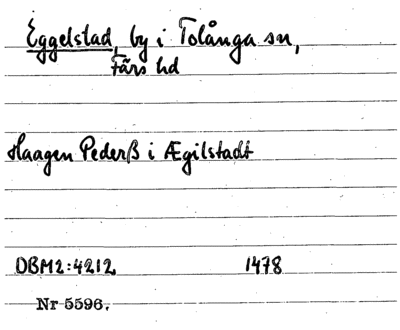 Eggelstad, by i Tolånga sn,
Färs hd
Haagen Pederß i Ægilstadt
DBM2:4212 1478
Nr 5596.